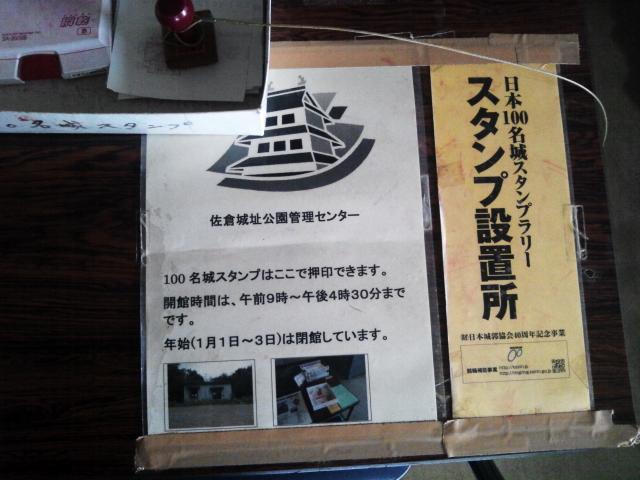 名城スタンプ
佐倉城址公園管理センター
100名城スタンプはここで押印できます。
開館時間は、午前9時～午後4時30分まで
です。
年始(1月1日～3日)は閉館しています。
日本100名城スタンプラリー
スタンプ設置所
財日本城郭協会40周年記念事業